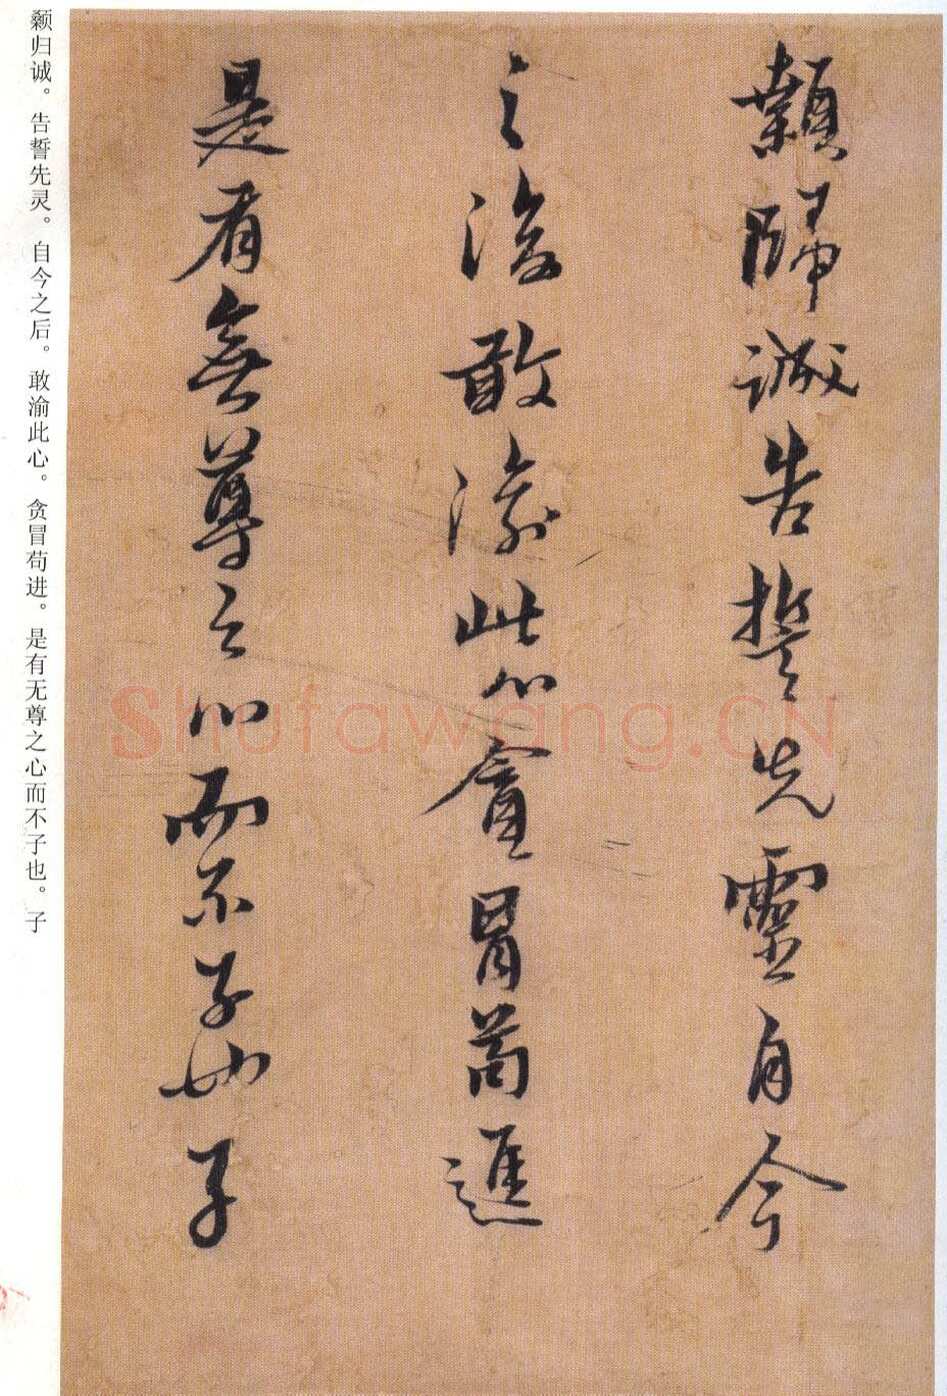 顙歸誠告誓先靈自今
之後敢渝此心貪冒苟進
是有無尊之心而不子也子
颡归诚。告誓先灵。自今之后。敢渝此心。贪冒苟进。是有无尊之心而不子也。子
Shufawang.CN